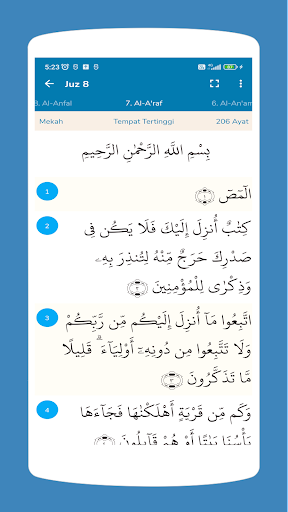 5:23
Juz 8
8. Al-Anfal 7. Al-A'raf 6. Al-An'am
Mekah Tempat Tertinggi 206 Ayat
بِسْمِ اللَّهِ الرَّحْمٰنِ الرَّحِيْمِ
1 الۤمّۤصۤ ۝١
2 كِتٰبٌ أُنزِلَ إِلَيْكَ فَلَا يَكُن فِى
صَدْرِكَ حَرَجٌ مِّنْهُ لِتُنذِرَ بِهِۦ
وَذِكْرٰى لِلْمُؤْمِنِينَ ۝٢
3 اتَّبِعُوا مَآ أُنزِلَ إِلَيْكُم مِّن رَّبِّكُمْ
وَلَا تَتَّبِعُوا مِن دُونِهِۦٓ أَوْلِيَآءَ ۗ قَلِيلًا
مَّا تَذَكَّرُونَ ۝٣
4 وَكَم مِّن قَرْيَةٍ أَهْلَكْنٰهَا فَجَآءَهَا
بَأْسُنَا بَيٰتًا أَوْ هُمْ قَآئِلُونَ ۝٤